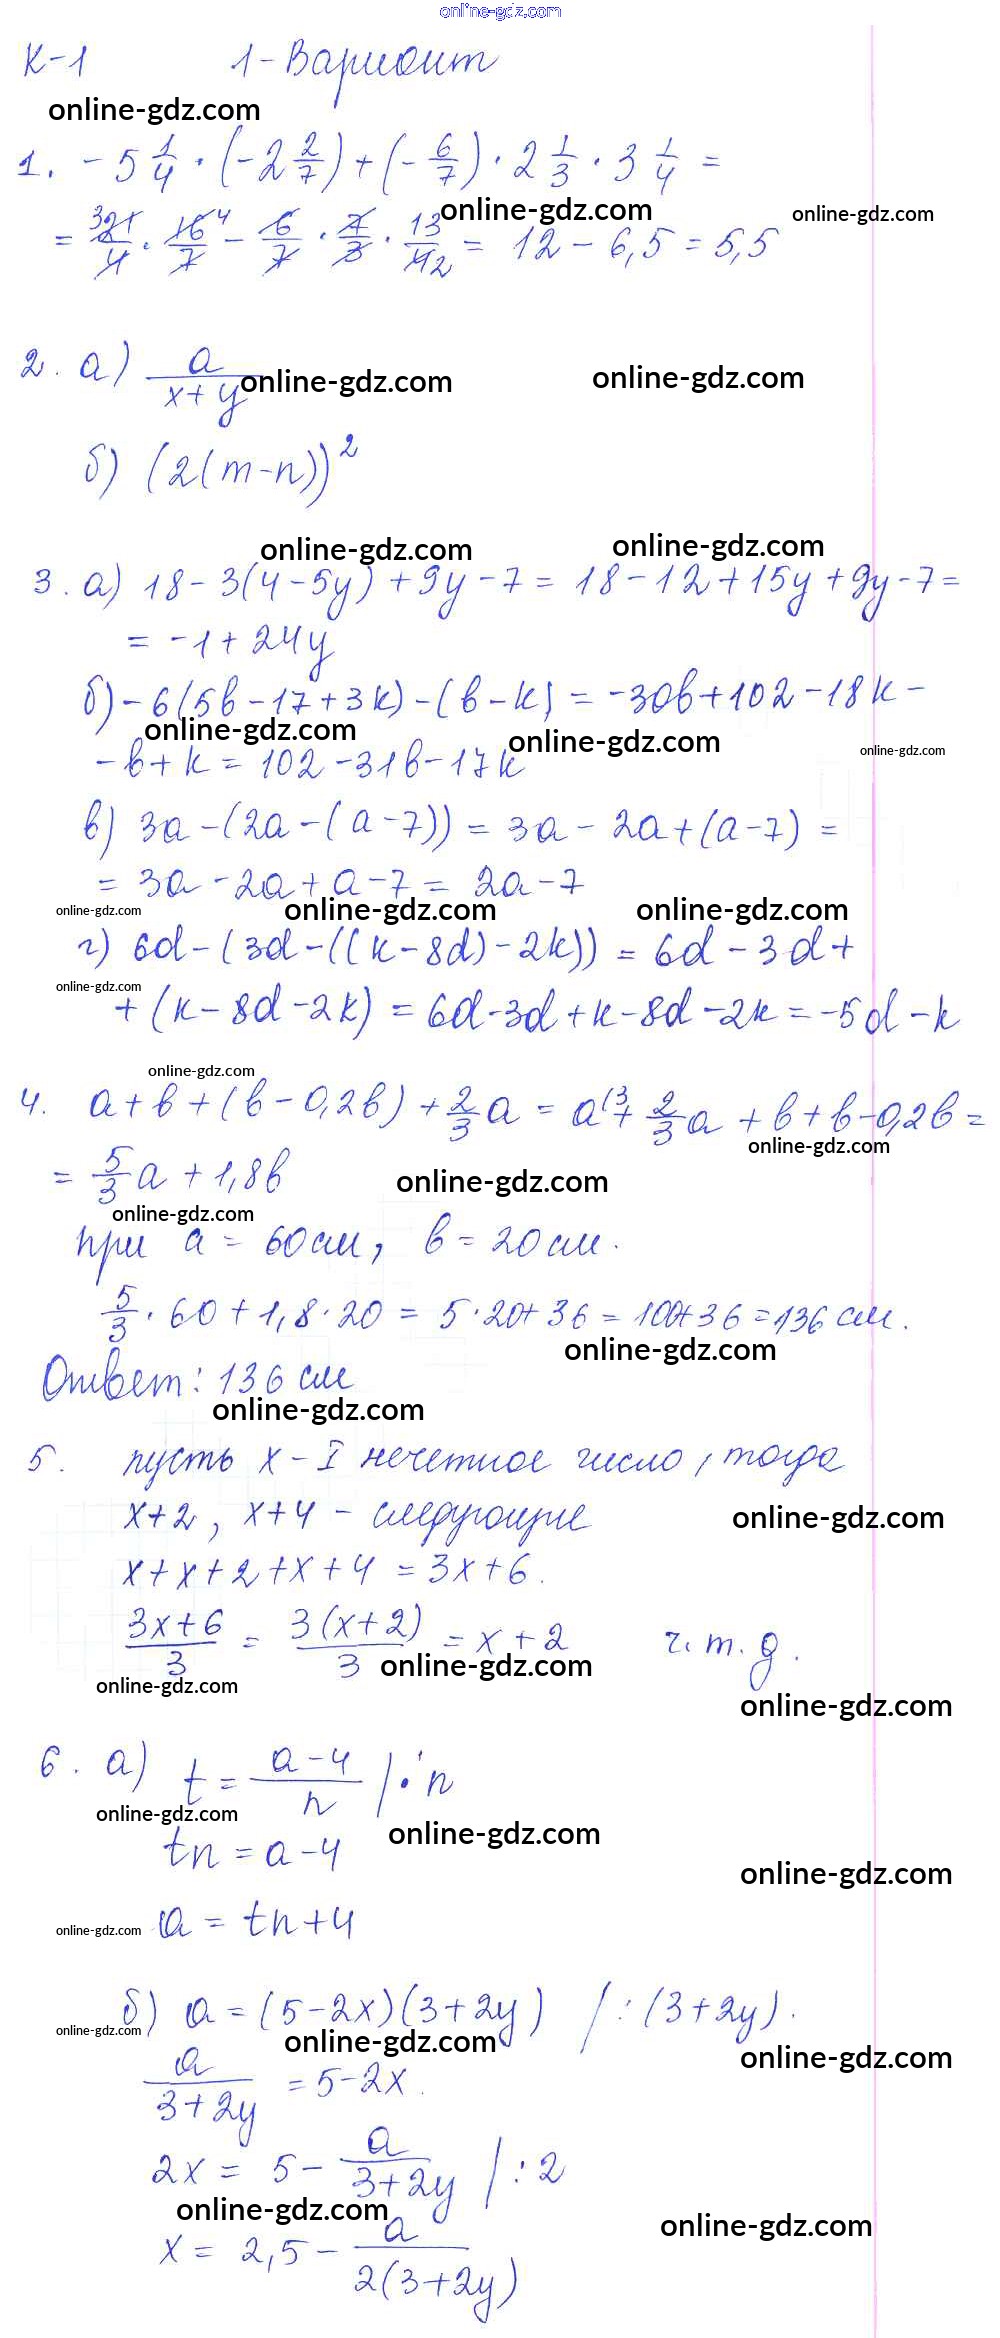 online-gdz.com
К-1 1-Вариант
online-gdz.com
1. -5 1/4 · (-2 2/7) + (-6/7) · 2 1/3 · 3 1/4 =
online-gdz.com online-gdz.com
= 21/4 · 16/7 - 6/7 · 7/3 · 13/4 = 12 - 6,5 = 5,5
2. а) a/(x+y)
online-gdz.com online-gdz.com
б) (2(m-n))²
online-gdz.com online-gdz.com
3. а) 18 - 3(4 - 5y) + 9y - 7 = 18 - 12 + 15y + 9y - 7 =
= -1 + 24y
б) -6(5b - 17 + 3k) - (b - k) = -30b + 102 - 18k -
online-gdz.com online-gdz.com online-gdz.com
- b + k = 102 - 31b - 17k
в) 3a - (2a - (a - 7)) = 3a - 2a + (a - 7) =
= 3a - 2a + a - 7 = 2a - 7
online-gdz.com online-gdz.com online-gdz.com
г) 6d - (3d - ((k - 8d) - 2k)) = 6d - 3d +
online-gdz.com
+ (k - 8d - 2k) = 6d - 3d + k - 8d - 2k = -5d - k
online-gdz.com
4. a + b + (b - 0,2b) + 2/3 a = a(3 + 2/3 a + b + b - 0,2b =
online-gdz.com
= 5/3 a + 1,8b
online-gdz.com
online-gdz.com
при a = 60 см, b = 20 см.
5/3 · 60 + 1,8 · 20 = 5 · 20 + 36 = 100 + 36 = 136 см.
online-gdz.com
Ответ: 136 см
online-gdz.com
5. пусть x - I нечетное число, тогда
x+2, x+4 - следующие
online-gdz.com
x + x + 2 + x + 4 = 3x + 6.
(3x+6)/3 = 3(x+2)/3 = x + 2 ч.т.д.
online-gdz.com online-gdz.com
online-gdz.com
6. а) t = (a-4)/n / · n
online-gdz.com online-gdz.com
tn = a - 4
online-gdz.com
online-gdz.com a = tn + 4
б) a = (5 - 2x)(3 + 2y) / : (3 + 2y).
online-gdz.com online-gdz.com online-gdz.com
a/(3+2y) = 5 - 2x.
2x = 5 - a/(3+2y) / : 2
online-gdz.com online-gdz.com
x = 2,5 - a/(2(3+2y))